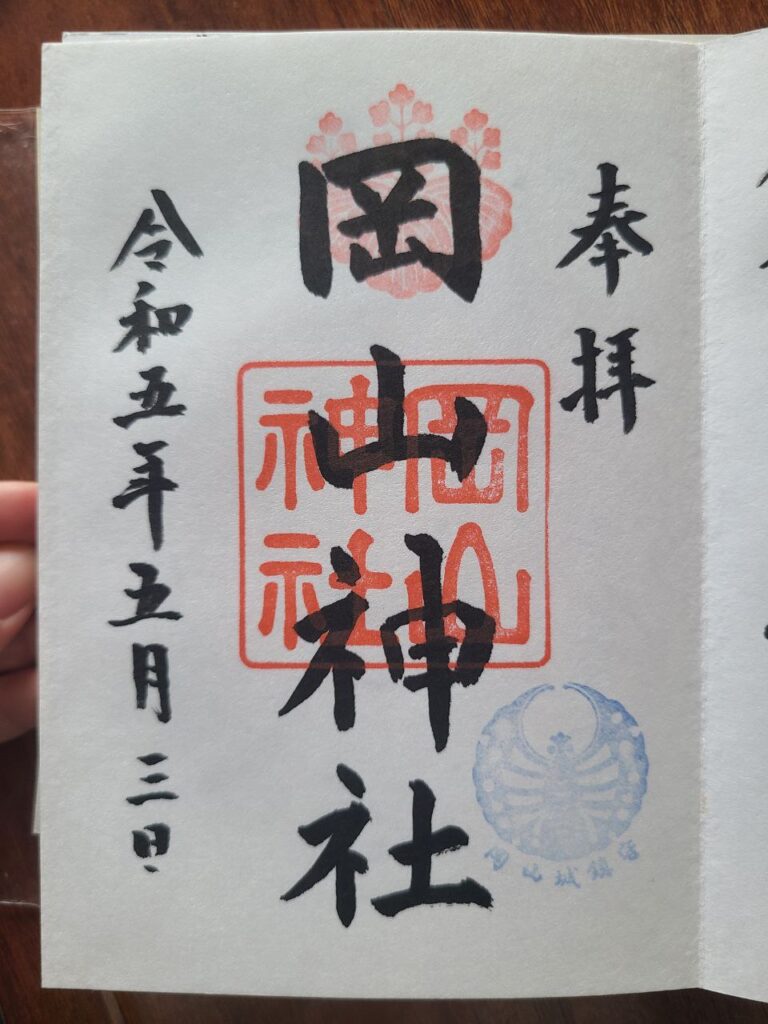 奉拝
岡山神社
岡山
神社
岡山城鎮
令和五年五月三日